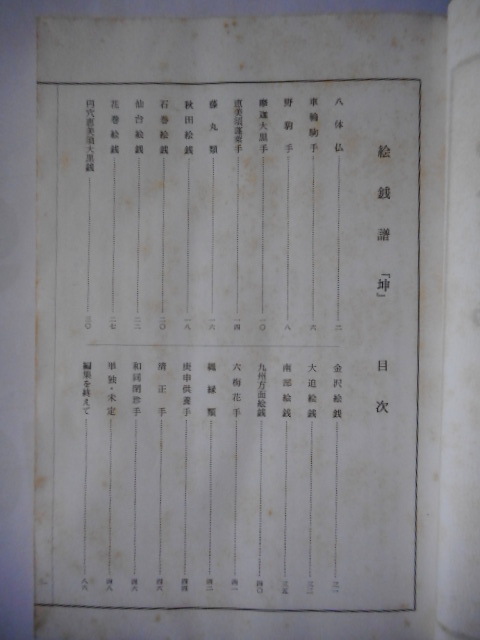 絵銭譜『坤』 目次
八体仏 二
車輪駒手 六
野駒手 八
摩迦大黒手 一〇
恵美須蓬萊手 一四
藤丸類 一六
秋田絵銭 一八
石巻絵銭 二〇
仙台絵銭 二二
花巻絵銭 二七
円穴恵美須大黒銭 三〇
金沢絵銭 三一
大迫絵銭 三二
南部絵銭 三五
九州方面絵銭 四〇
六梅花手 四一
縁類 四二
庚申供養手 四四
清正手 四六
和同開珎手 四六
単独・未定 四八
編集を終えて 八六